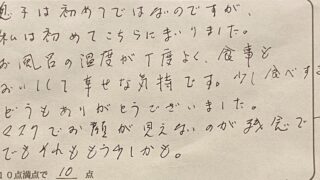 息子は初めてではないのですが、
私は初めてこちらにまいりました。
お風呂の温度が丁度よく、食事も
おいしくて幸せな気持です。少し食べす
どうもありがとうございました。
マスクでお顔が見えないのが残念で
でもそれももう少しかも。
10点満点で 10 点